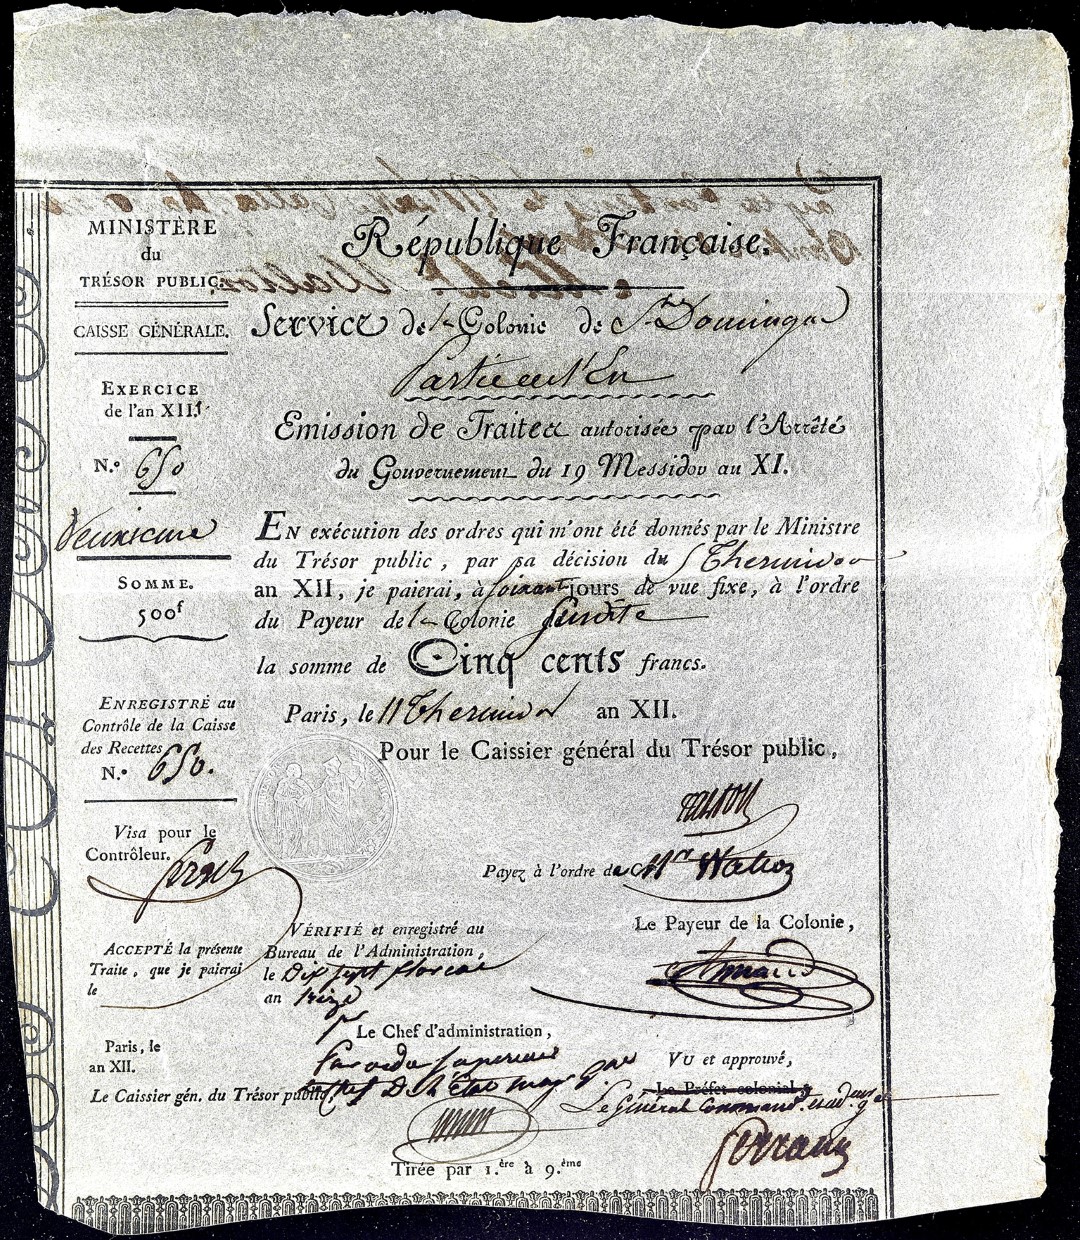 MINISTÈRE
du
TRÉSOR PUBLIC.
CAISSE GÉNÉRALE.
EXERCICE
de l'an XII.
N.º 650
Deuxieme
SOMME.
500f
ENREGISTRÉ au
Contrôle de la Caisse
des Recettes
N.º 650.
Visa pour le
Contrôleur.
ACCEPTÉ la présente
Traite, que je paierai
le
Paris, le
an XII.
Le Caissier gén. du Trésor public,
République Française.
Service de la Colonie de St. Domingue
Partie de l'Est
Emission de Traites autorisée par l'Arrêté
du Gouvernement du 19 Messidor an XI.
EN exécution des ordres qui m'ont été donnés par le Ministre
du Trésor public, par sa décision du 5 Thermidor
an XII, je paierai, à soixante jours de vue fixe, à l'ordre
du Payeur de la Colonie Susdite
la somme de Cinq cents francs.
Paris, le 11 Thermidor an XII.
Pour le Caissier général du Trésor public,
Payez à l'ordre de Mr Walton
Le Payeur de la Colonie,
VÉRIFIÉ et enregistré au
Bureau de l'Administration,
le Dix sept floreal
an treize
Le Chef d'administration,
Chef De L'État major
Vu et approuvé,
Le Préfet colonial,
Le Général Command.
Ferrand
Tirée par 1.ère à 9.ème